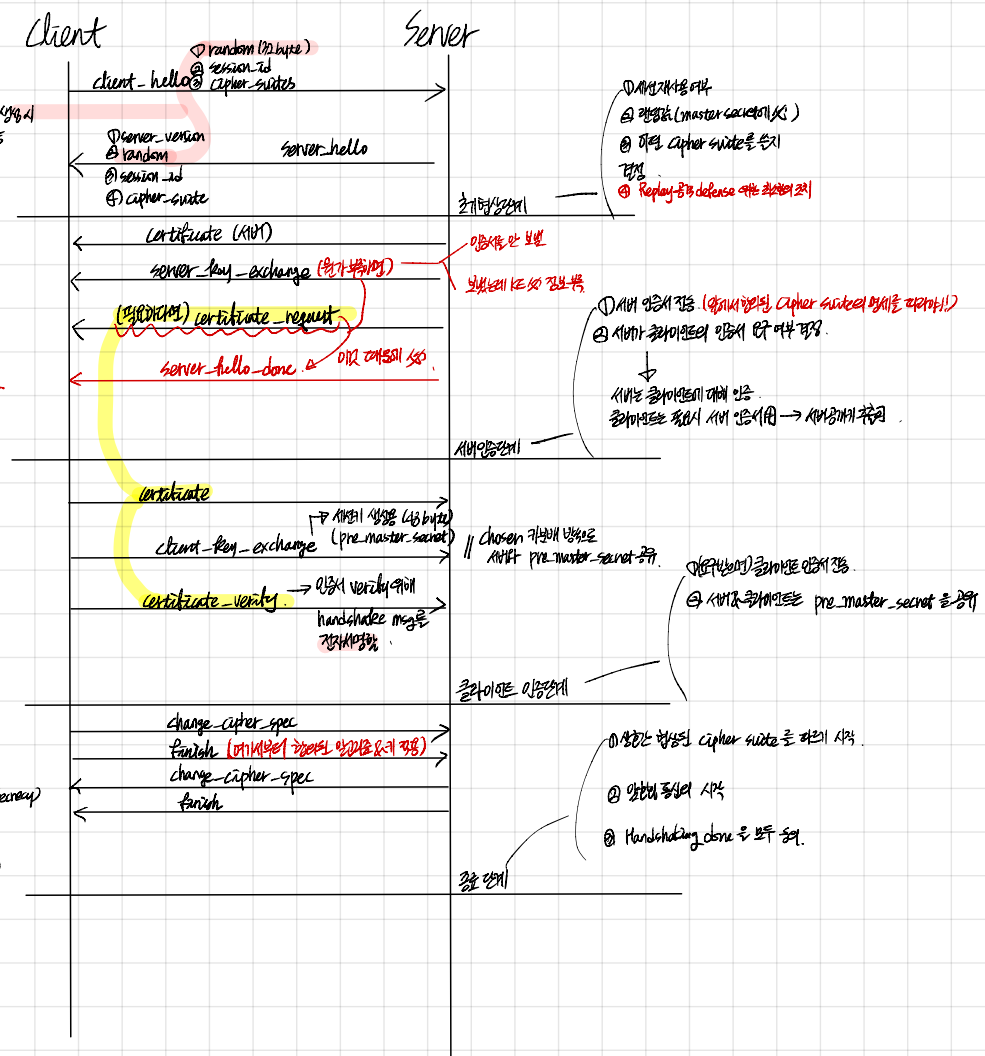 Client
Server
① random (32 byte)
② session_id
③ cipher_suites
client_hello
생성시
① server_version
② random
③ session_id
④ cipher_suite
server_hello
① 세션 재사용 여부
② 랜덤값 (master secret에 必)
③ 어떤 cipher suite를 쓸지
결정
④ Replay 공격 defense 위한 최소한의 조치
초기협상단계
certificate (서버)
server_key_exchange (뭔가 부족하면)
인증서를 안 보냄
보냈는데 KE 必 정보 부족
(필요하다면) certificate_request
server_hello_done
이것 때문에 必.
① 서버 인증서 전송 (앞에서 합의된 cipher suite의 명세를 따라야!!)
② 서버가 클라이언트의 인증서 요구 여부 결정.
서버는 클라이언트에 대해 인증.
클라이언트는 필요시 서버 인증서 → 서버공개키 추출
서버인증단계
certificate
→ 세션키 생성용 (48 byte)
(pre_master_secret)
client_key_exchange
// chosen 키분배 방식으로
서버와 pre_master_secret 공유.
certificate_verify.
→ 인증서 verify 위해
handshake msg를
전자서명함.
① (요구받으면) 클라이언트 인증서 전송.
② 서버&클라이언트는 pre_master_secret을 공유
클라이언트 인증단계
change_cipher_spec
finish (여기서부터 합의된 알고리즘&키 적용)
change_cipher_spec
finish
① 상호간 협상된 cipher suite를 따르기 시작.
② 암호화 통신의 시작
③ Handshaking done을 모두 동의.
종료 단계